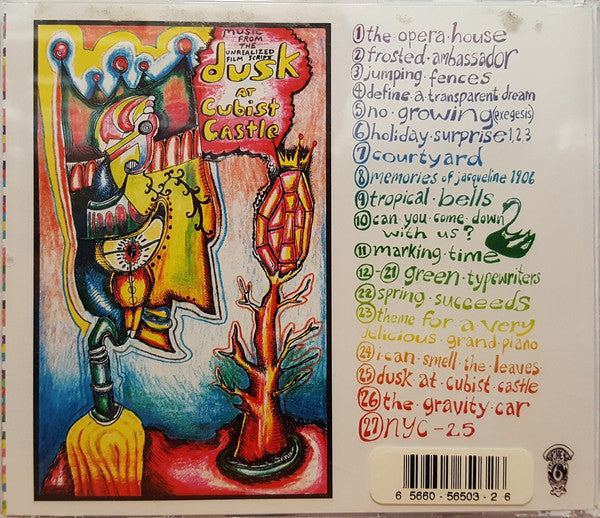 music
from
the
unrealized
film script
dusk
at
Cubist
Castle
1 the opera·house
2 frosted·ambassador
3 jumping fences
4 define·a·transparent·dream
5 no·growing (exegesis)
6 holiday·surprise 1,2,3
7 courtyard
8 memories of jacqueline 1906
9 tropical·bells
10 can you come down
with us?
11 marking·time
12-21 green typewriters
22 spring·succeeds
23 theme for a very
delicious grand piano
24 i·can·smell·the·leaves
25 dusk·at·cubist·castle
26 the·gravity·car
27 NYC-25
6 5660-56503-2 6
THE
6